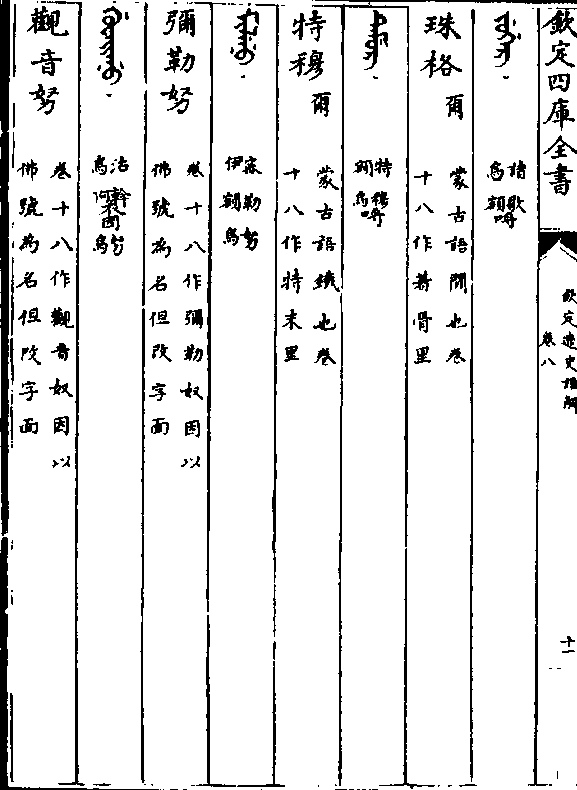 欽定四庫全書
欽定遼史語解
卷八
十一
諸歌
烏額呼
珠格爾
蒙古語閒也卷
十八作著骨里
特穆呼
額烏
特穆爾
蒙古語鐵也卷
十八作特末里
密勒努
伊額烏
彌勒努
卷十八作彌勒奴因以
佛號為名但改字面
觀音努
卷十八作觀音奴因以
佛號為名但改字面